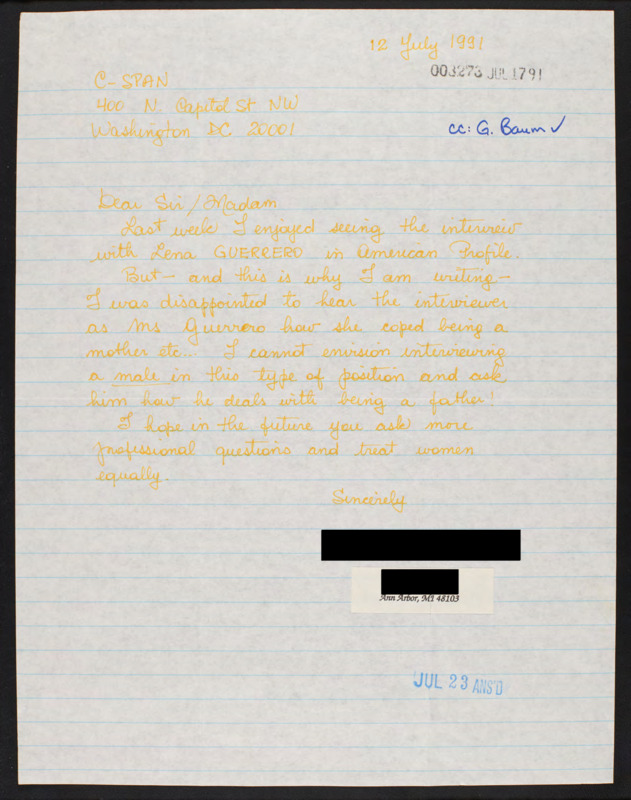 12 July 1991
003273 JUL 17 91
C-SPAN
400 N. Capitol St NW
Washington DC 20001
cc: G. Baum ✓
Dear Sir / Madam
Last week I enjoyed seeing the interview
with Lena GUERRERO in American Profile.
But - and this is why I am writing -
I was disappointed to hear the interviewer
as Ms Guerrero how she coped being a
mother etc... I cannot envision interviewing
a male in this type of position and ask
him how he deals with being a father!
I hope in the future you ask more
professional questions and treat women
equally.
Sincerely
Ann Arbor, MI 48103
JUL 23 ANS'D